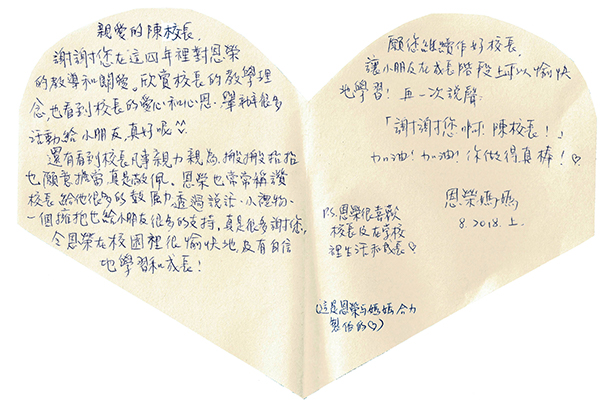 親愛的陳校長,
謝謝您在這四年裡對恩榮
的教導和關愛。欣賞校長的教學理
念,也看到校長的愛心和心思,舉辦很多
活動給小朋友,真好呢^^
還有看到校長凡事親力親為,搬搬抬抬
也願意擔當真是敬佩。恩榮也常常稱讚
校長給他很多的鼓勵透過說話、小禮物、
一個擁抱也給小朋友很多的支持,真是很多謝您,
令恩榮在校園裡很愉快地及有自信
地學習和成長!
願您繼續作好校長,
讓小朋友在成長階段上可以愉快
地學習!再一次說聲
「謝謝您啊!陳校長!」
加油!加油!你做得真棒!♡
恩榮媽媽
8.2018.上
P.S.恩榮很喜歡
校長及在學校
裡生活和成長♡
(這是恩榮与媽媽合力
製作的♡)